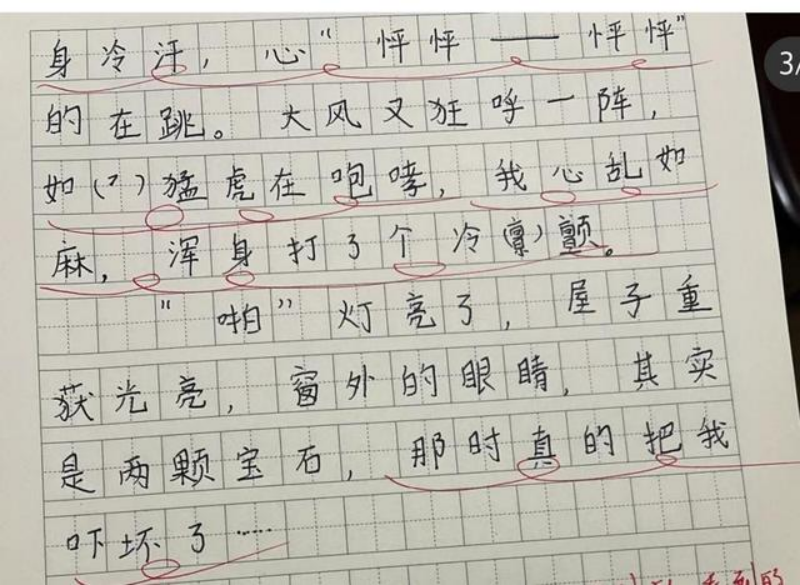 身冷汗，心“怦怦——怦怦”
的在跳。大风又狂呼一阵，
如(？)猛虎在咆哮，我心乱如
麻，浑身打了个冷(禀)颤。
“啪”灯亮了，屋子重
获光亮，窗外的眼睛，其实
是两颗宝石，那时真的把我
吓坏了……
3/